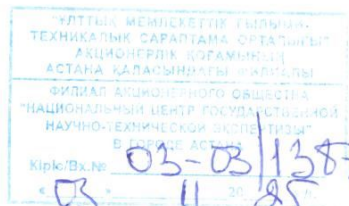 "ҰЛТТЫҚ МЕМЛЕКЕТТІК ҒЫЛЫМИ-
ТЕХНИКАЛЫҚ САРАПТАМА ОРТАЛЫҒЫ"
АКЦИОНЕРЛІК ҚОҒАМЫНЫҢ
АСТАНА ҚАЛАСЫНДАҒЫ ФИЛИАЛЫ
ФИЛИАЛ АКЦИОНЕРНОГО ОБЩЕСТВА
"НАЦИОНАЛЬНЫЙ ЦЕНТР ГОСУДАРСТВЕННОЙ
НАУЧНО-ТЕХНИЧЕСКОЙ ЭКСПЕРТИЗЫ"
В ГОРОДЕ АСТАНА
Кіріс/Вх.№ 03-03/138
« 03 » 11 20 25